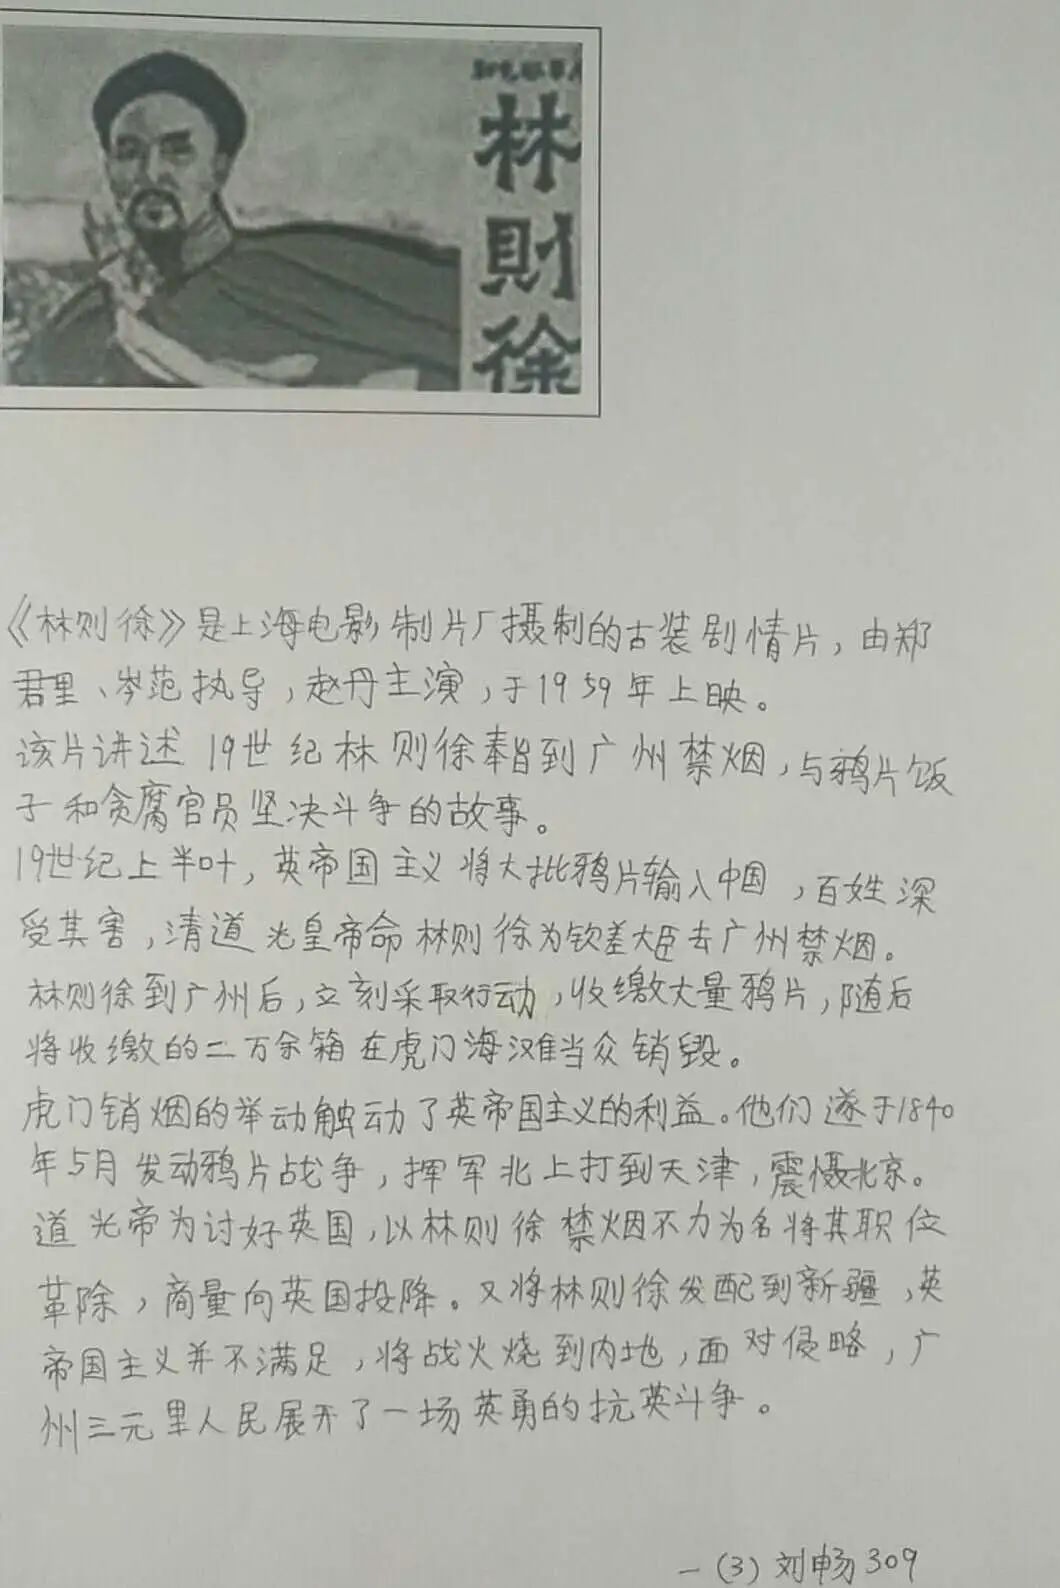 林
則
徐
《林则徐》是上海电影制片厂摄制的古装剧情片，由郑
君里、岑范执导，赵丹主演，于1959年上映。
该片讲述19世纪林则徐奉旨到广州禁烟，与鸦片饭
子和贪腐官员坚决斗争的故事。
19世纪上半叶，英帝国主义将大批鸦片输入中国，百姓深
受其害，清道光皇帝命林则徐为钦差大臣去广州禁烟。
林则徐到广州后，立刻采取行动，收缴大量鸦片，随后
将收缴的二万余箱在虎门海滩当众销毁。
虎门销烟的举动触动了英帝国主义的利益。他们遂于1840
年5月发动鸦片战争，挥军北上打到天津，震慑北京。
道光帝为讨好英国，以林则徐禁烟不力为名将其职位
革除，商量向英国投降。又将林则徐发配到新疆，英
帝国主义并不满足，将战火烧到内地，面对侵略，广
州三元里人民展开了一场英勇的抗英斗争。
一(3)刘畅309